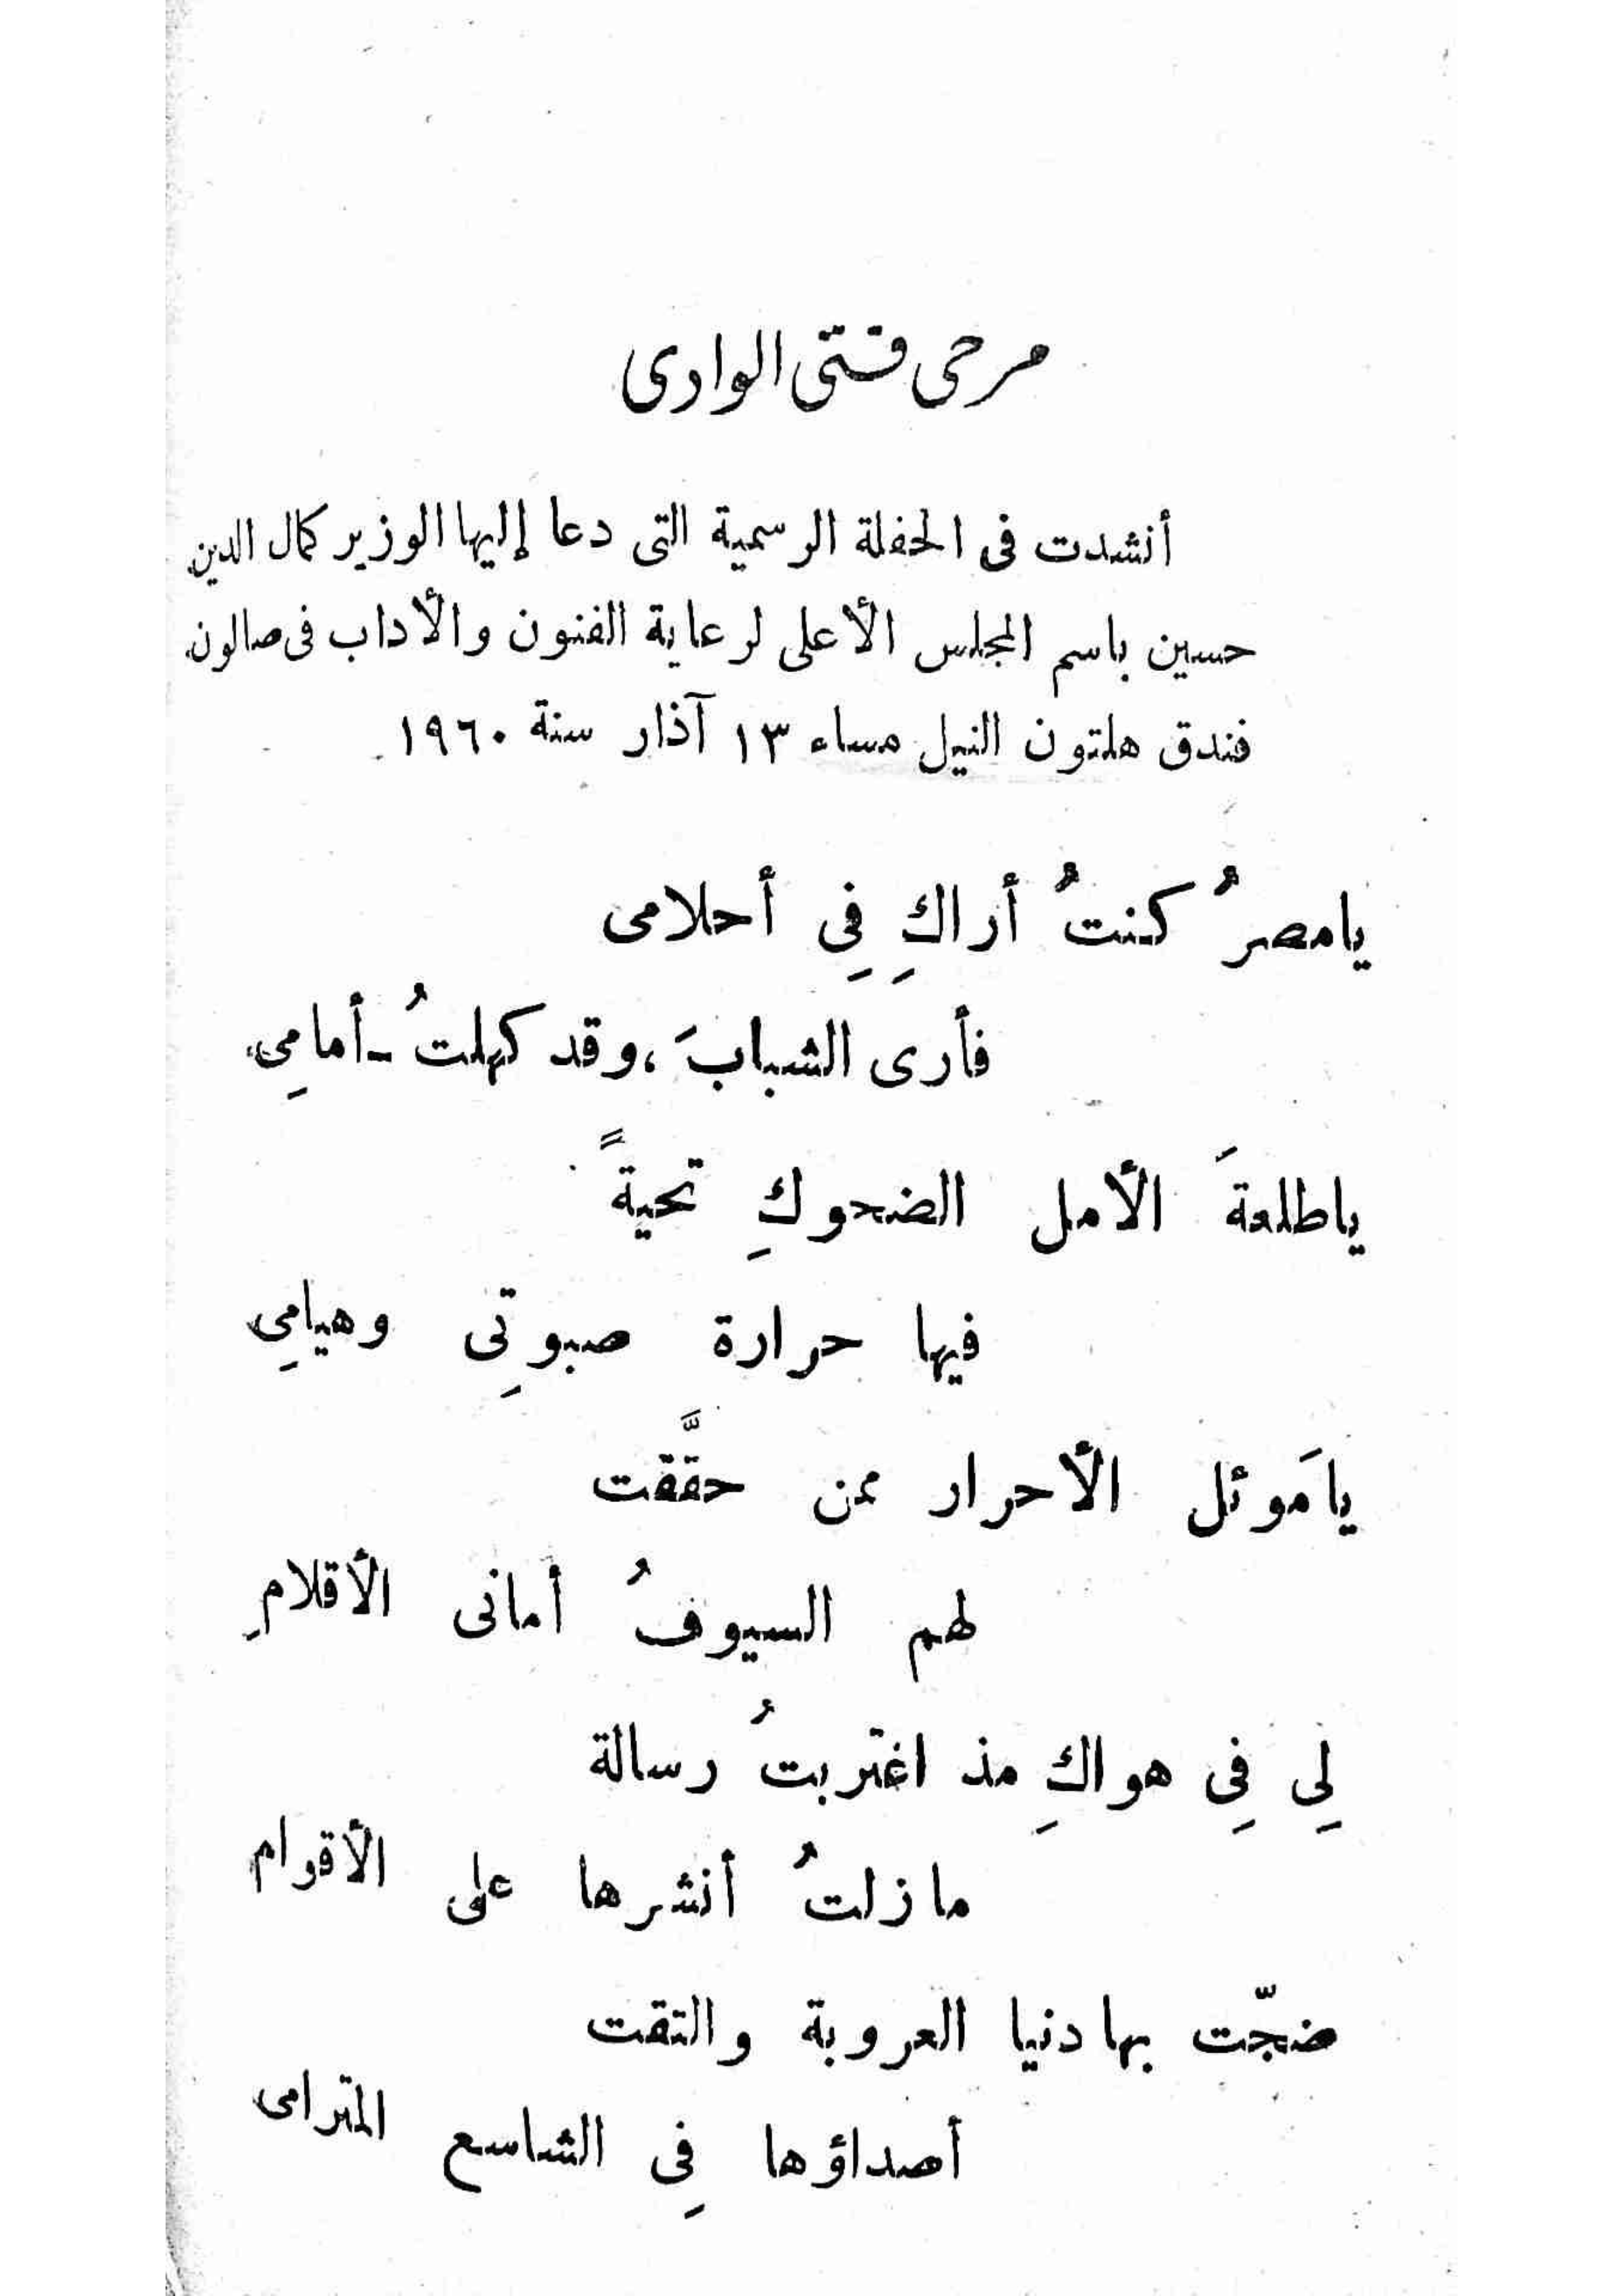 مرحى فتى الوادى
أنشدت فى الحفلة الرسمية التى دعا إليها الوزير كمال الدين
حسين باسم المجلس الأعلى لرعاية الفنون والأداب فى صالون
فندق هلتون النيل مساء ١٣ آذار سنة ١٩٦٠
يا مصرُ كنتُ أراكِ فِى أحلامى
فأرى الشبابَ ، وقد كهلتُ - أمامِى
يا طلعةَ الأمل الضحوكِ تحيةً
فيها حرارة صبوتِى وهيامِى
يا مَوئل الأحرار ممن حقَّقت
لهم السيوفُ أمانى الأقلامِ
لِى فِى هواكِ مذ اغتربتُ رسالة
ما زلتُ أنشرها على الأقوام
ضجّت بها دنيا العروبة والتقت
أصداؤها فِى الشاسع المترامى